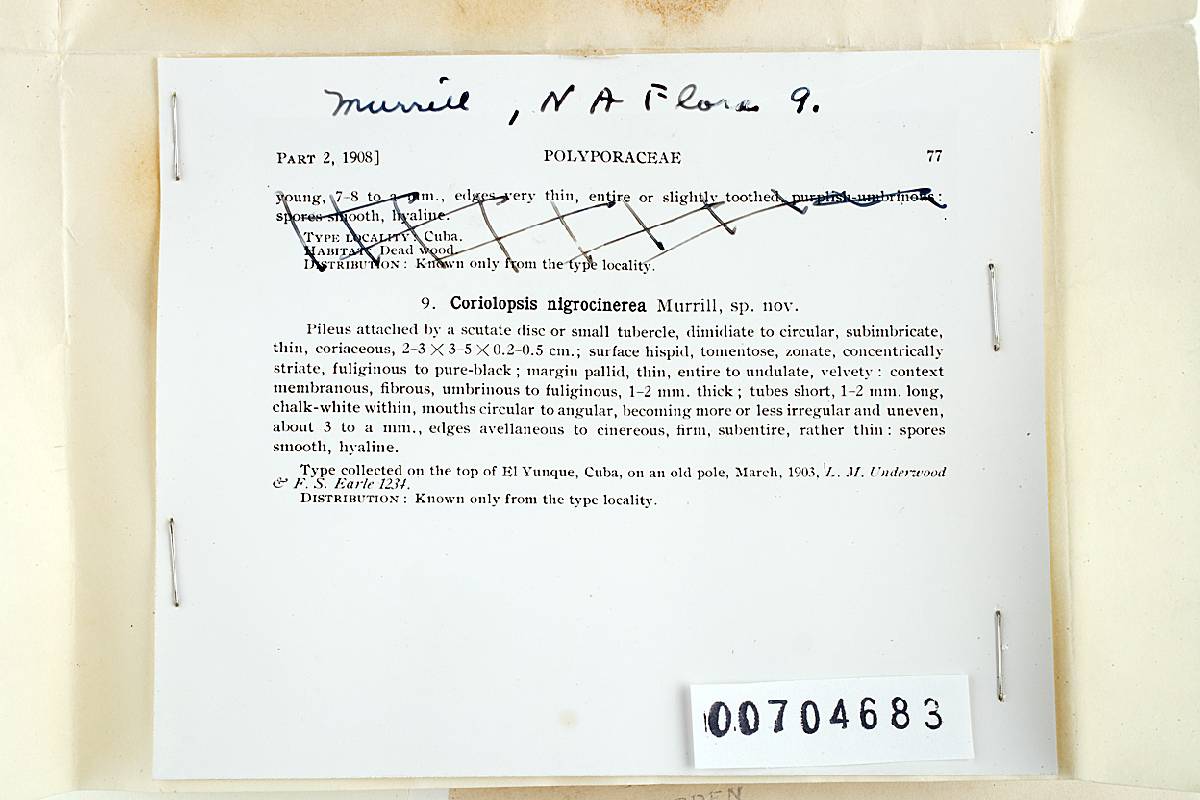 Murrill, N A Flora 9.
PART 2, 1908] POLYPORACEAE 77
young, 7–8 to a mm., edges very thin, entire or slightly toothed, purplish-umbrinous:
spores smooth, hyaline.
TYPE LOCALITY: Cuba.
HABITAT: Dead wood.
DISTRIBUTION: Known only from the type locality.
9. Coriolopsis nigrocinerea Murrill, sp. nov.
Pileus attached by a scutate disc or small tubercle, dimidiate to circular, subimbricate,
thin, coriaceous, 2–3 × 3–5 × 0.2–0.5 cm.; surface hispid, tomentose, zonate, concentrically
striate, fuliginous to pure-black; margin pallid, thin, entire to undulate, velvety: context
membranous, fibrous, umbrinous to fuliginous, 1–2 mm. thick; tubes short, 1–2 mm. long,
chalk-white within, mouths circular to angular, becoming more or less irregular and uneven,
about 3 to a mm., edges avellaneous to cinereous, firm, subentire, rather thin: spores
smooth, hyaline.
Type collected on the top of El Yunque, Cuba, on an old pole, March, 1903, L. M. Underwood
& F. S. Earle 1234.
DISTRIBUTION: Known only from the type locality.
00704683